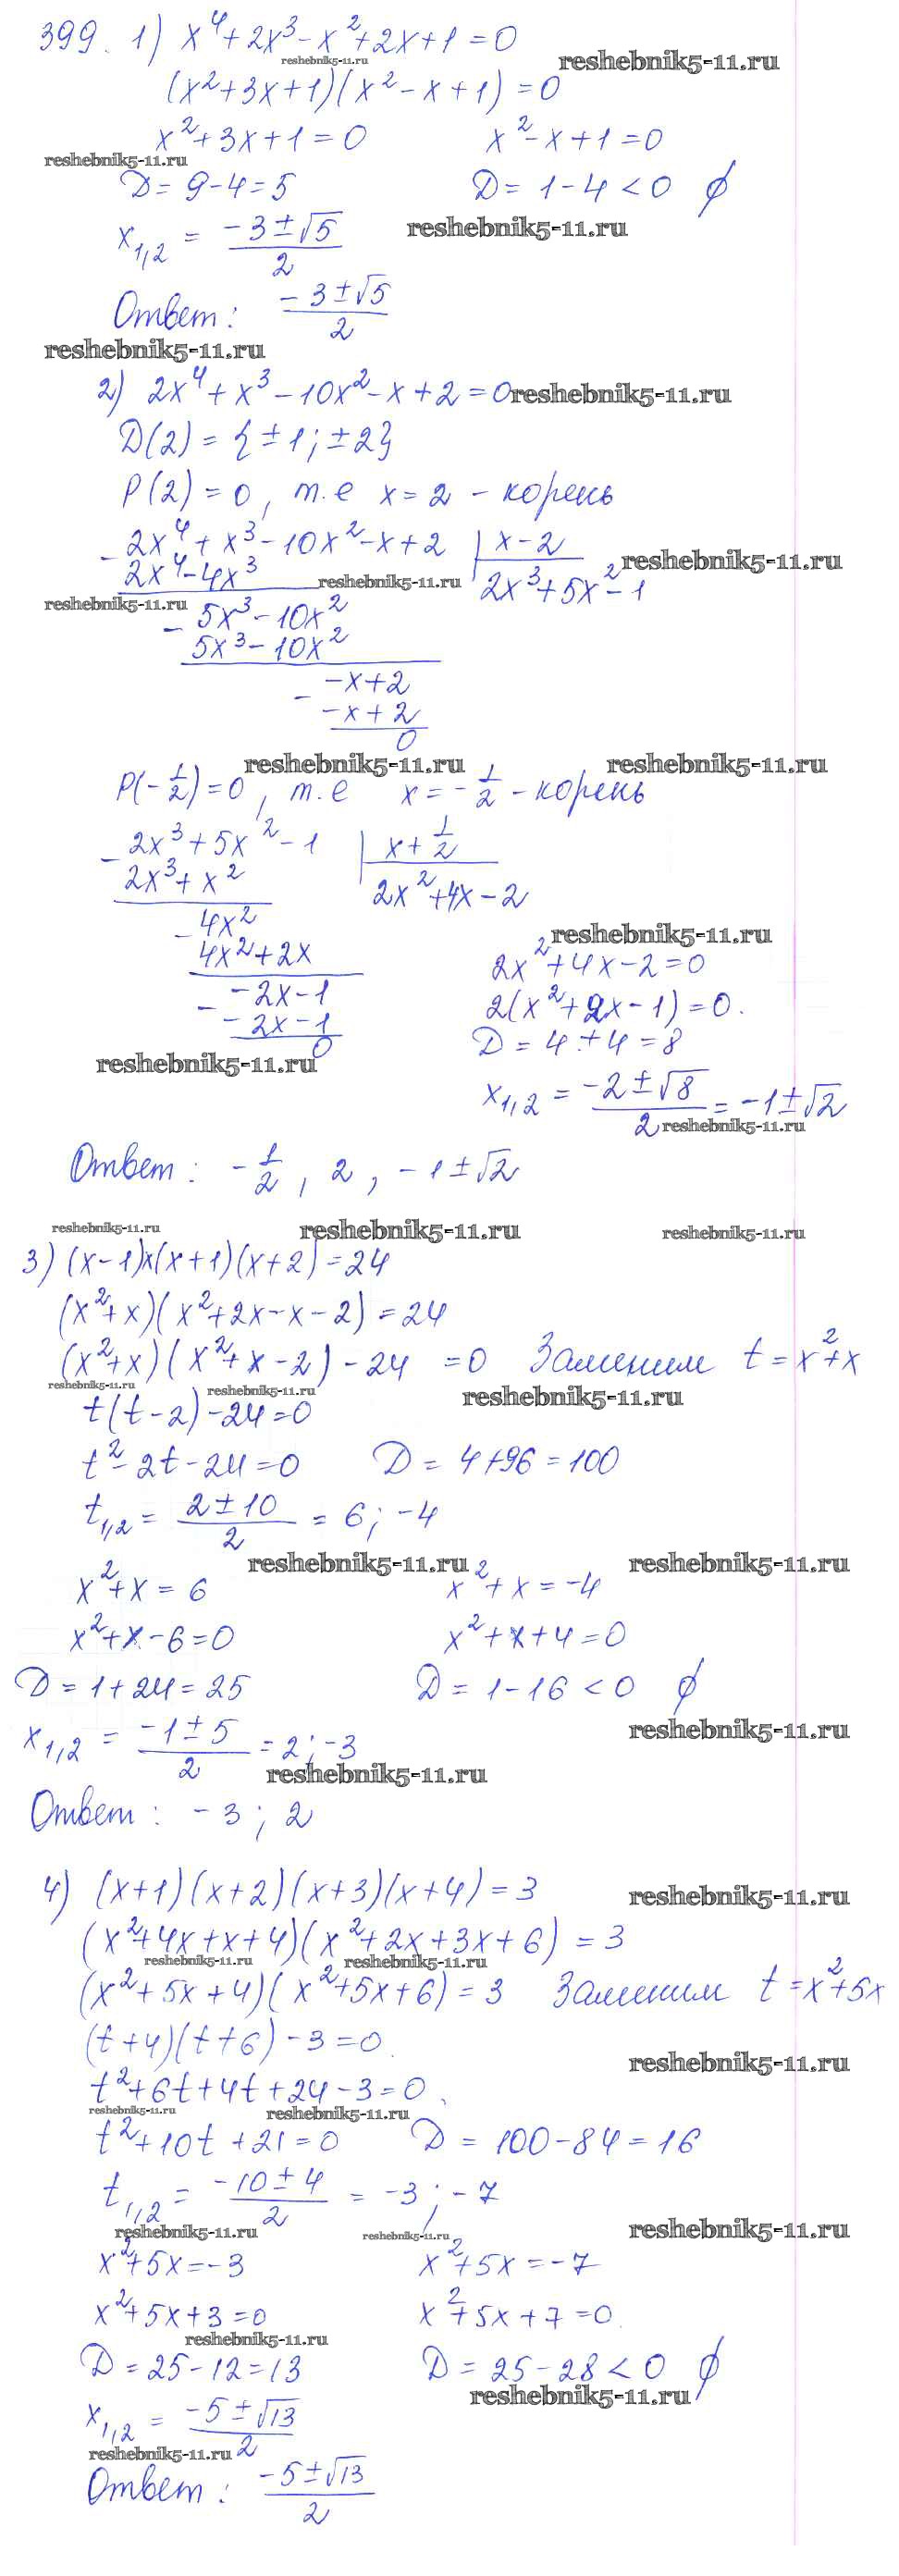 399. 1) x⁴+2x³-x²+2x+1=0
reshebnik5-11.ru
reshebnik5-11.ru
(x²+3x+1)(x²-x+1)=0
x²+3x+1=0 x²-x+1=0
reshebnik5-11.ru
D=9-4=5 D=1-4<0 ∅
x₁,₂ = (-3±√5)/2 reshebnik5-11.ru
Ответ: (-3±√5)/2
reshebnik5-11.ru
2) 2x⁴+x³-10x²-x+2=0 reshebnik5-11.ru
D(2)={±1;±2}
P(2)=0, т.е x=2 - корень
- 2x⁴+x³-10x²-x+2 | x-2
reshebnik5-11.ru
2x⁴-4x³ reshebnik5-11.ru 2x³+5x²-1
reshebnik5-11.ru
- 5x³-10x²
5x³-10x²
- -x+2
-x+2
0
reshebnik5-11.ru reshebnik5-11.ru
P(-1/2)=0, т.е x=-1/2 - корень
- 2x³+5x²-1 | x+1/2
2x³+x² 2x²+4x-2
- 4x²
reshebnik5-11.ru
4x²+2x 2x²+4x-2=0
- -2x-1 2(x²+2x-1)=0.
-2x-1 D=4+4=8
0
reshebnik5-11.ru
x₁,₂ = (-2±√8)/2 = -1±√2
reshebnik5-11.ru
Ответ: -1/2, 2, -1±√2
reshebnik5-11.ru reshebnik5-11.ru reshebnik5-11.ru
3) (x-1)x(x+1)(x+2)=24
(x²+x)(x²+2x-x-2)=24
(x²+x)(x²+x-2)-24=0 Заменим t=x²+x
reshebnik5-11.ru reshebnik5-11.ru reshebnik5-11.ru
t(t-2)-24=0
t²-2t-24=0 D=4+96=100
t₁,₂ = (2±10)/2 = 6; -4
reshebnik5-11.ru reshebnik5-11.ru
x²+x=6 x²+x=-4
x²+x-6=0 x²+x+4=0
D=1+24=25 D=1-16<0 ∅
reshebnik5-11.ru
x₁,₂ = (-1±5)/2 = 2; -3
reshebnik5-11.ru
Ответ: -3; 2
4) (x+1)(x+2)(x+3)(x+4)=3 reshebnik5-11.ru
(x²+4x+x+4)(x²+2x+3x+6)=3
reshebnik5-11.ru reshebnik5-11.ru
(x²+5x+4)(x²+5x+6)=3 Заменим t=x²+5x
(t+4)(t+6)-3=0.
reshebnik5-11.ru
t²+6t+4t+24-3=0.
reshebnik5-11.ru reshebnik5-11.ru
t²+10t+21=0 D=100-84=16
t₁,₂ = (-10±4)/2 = -3; -7
reshebnik5-11.ru reshebnik5-11.ru reshebnik5-11.ru
x²+5x=-3 x²+5x=-7
x²+5x+3=0 x²+5x+7=0.
reshebnik5-11.ru
D=25-12=13 D=25-28<0 ∅
reshebnik5-11.ru
x₁,₂ = (-5±√13)/2
reshebnik5-11.ru
Ответ: (-5±√13)/2